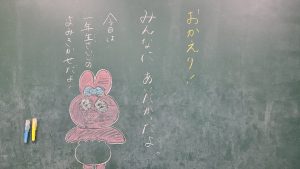 おかえり!
みんなに あいたかったよ。
今日は
一年生さいごの
よみきかせだよ